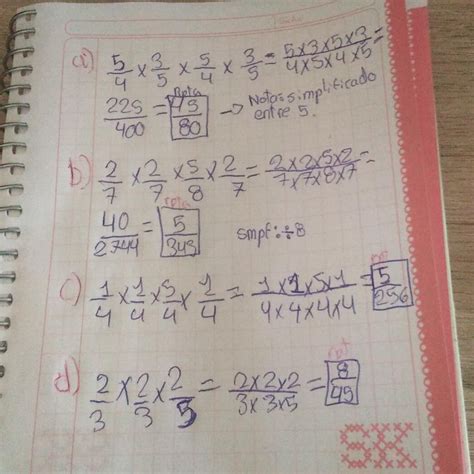 a) 5/4 × 3/5 × 5/4 × 3/5 = 5×3×5×3/4×5×4×5 =
Rpta
225/400 = 45/80 → Nota: simplificado
entre 5.
b) 2/7 × 2/7 × 5/8 × 2/7 = 2×2×5×2/7×7×8×7 =
rpta
40/2744 = 5/343 smpf: ÷8
rpt
c) 1/4 × 1/4 × 5/4 × 1/4 = 1×1×5×1/4×4×4×4 = 5/256
rpt
d) 2/3 × 2/3 × 2/5 = 2×2×2/3×3×5 = 8/45
SK